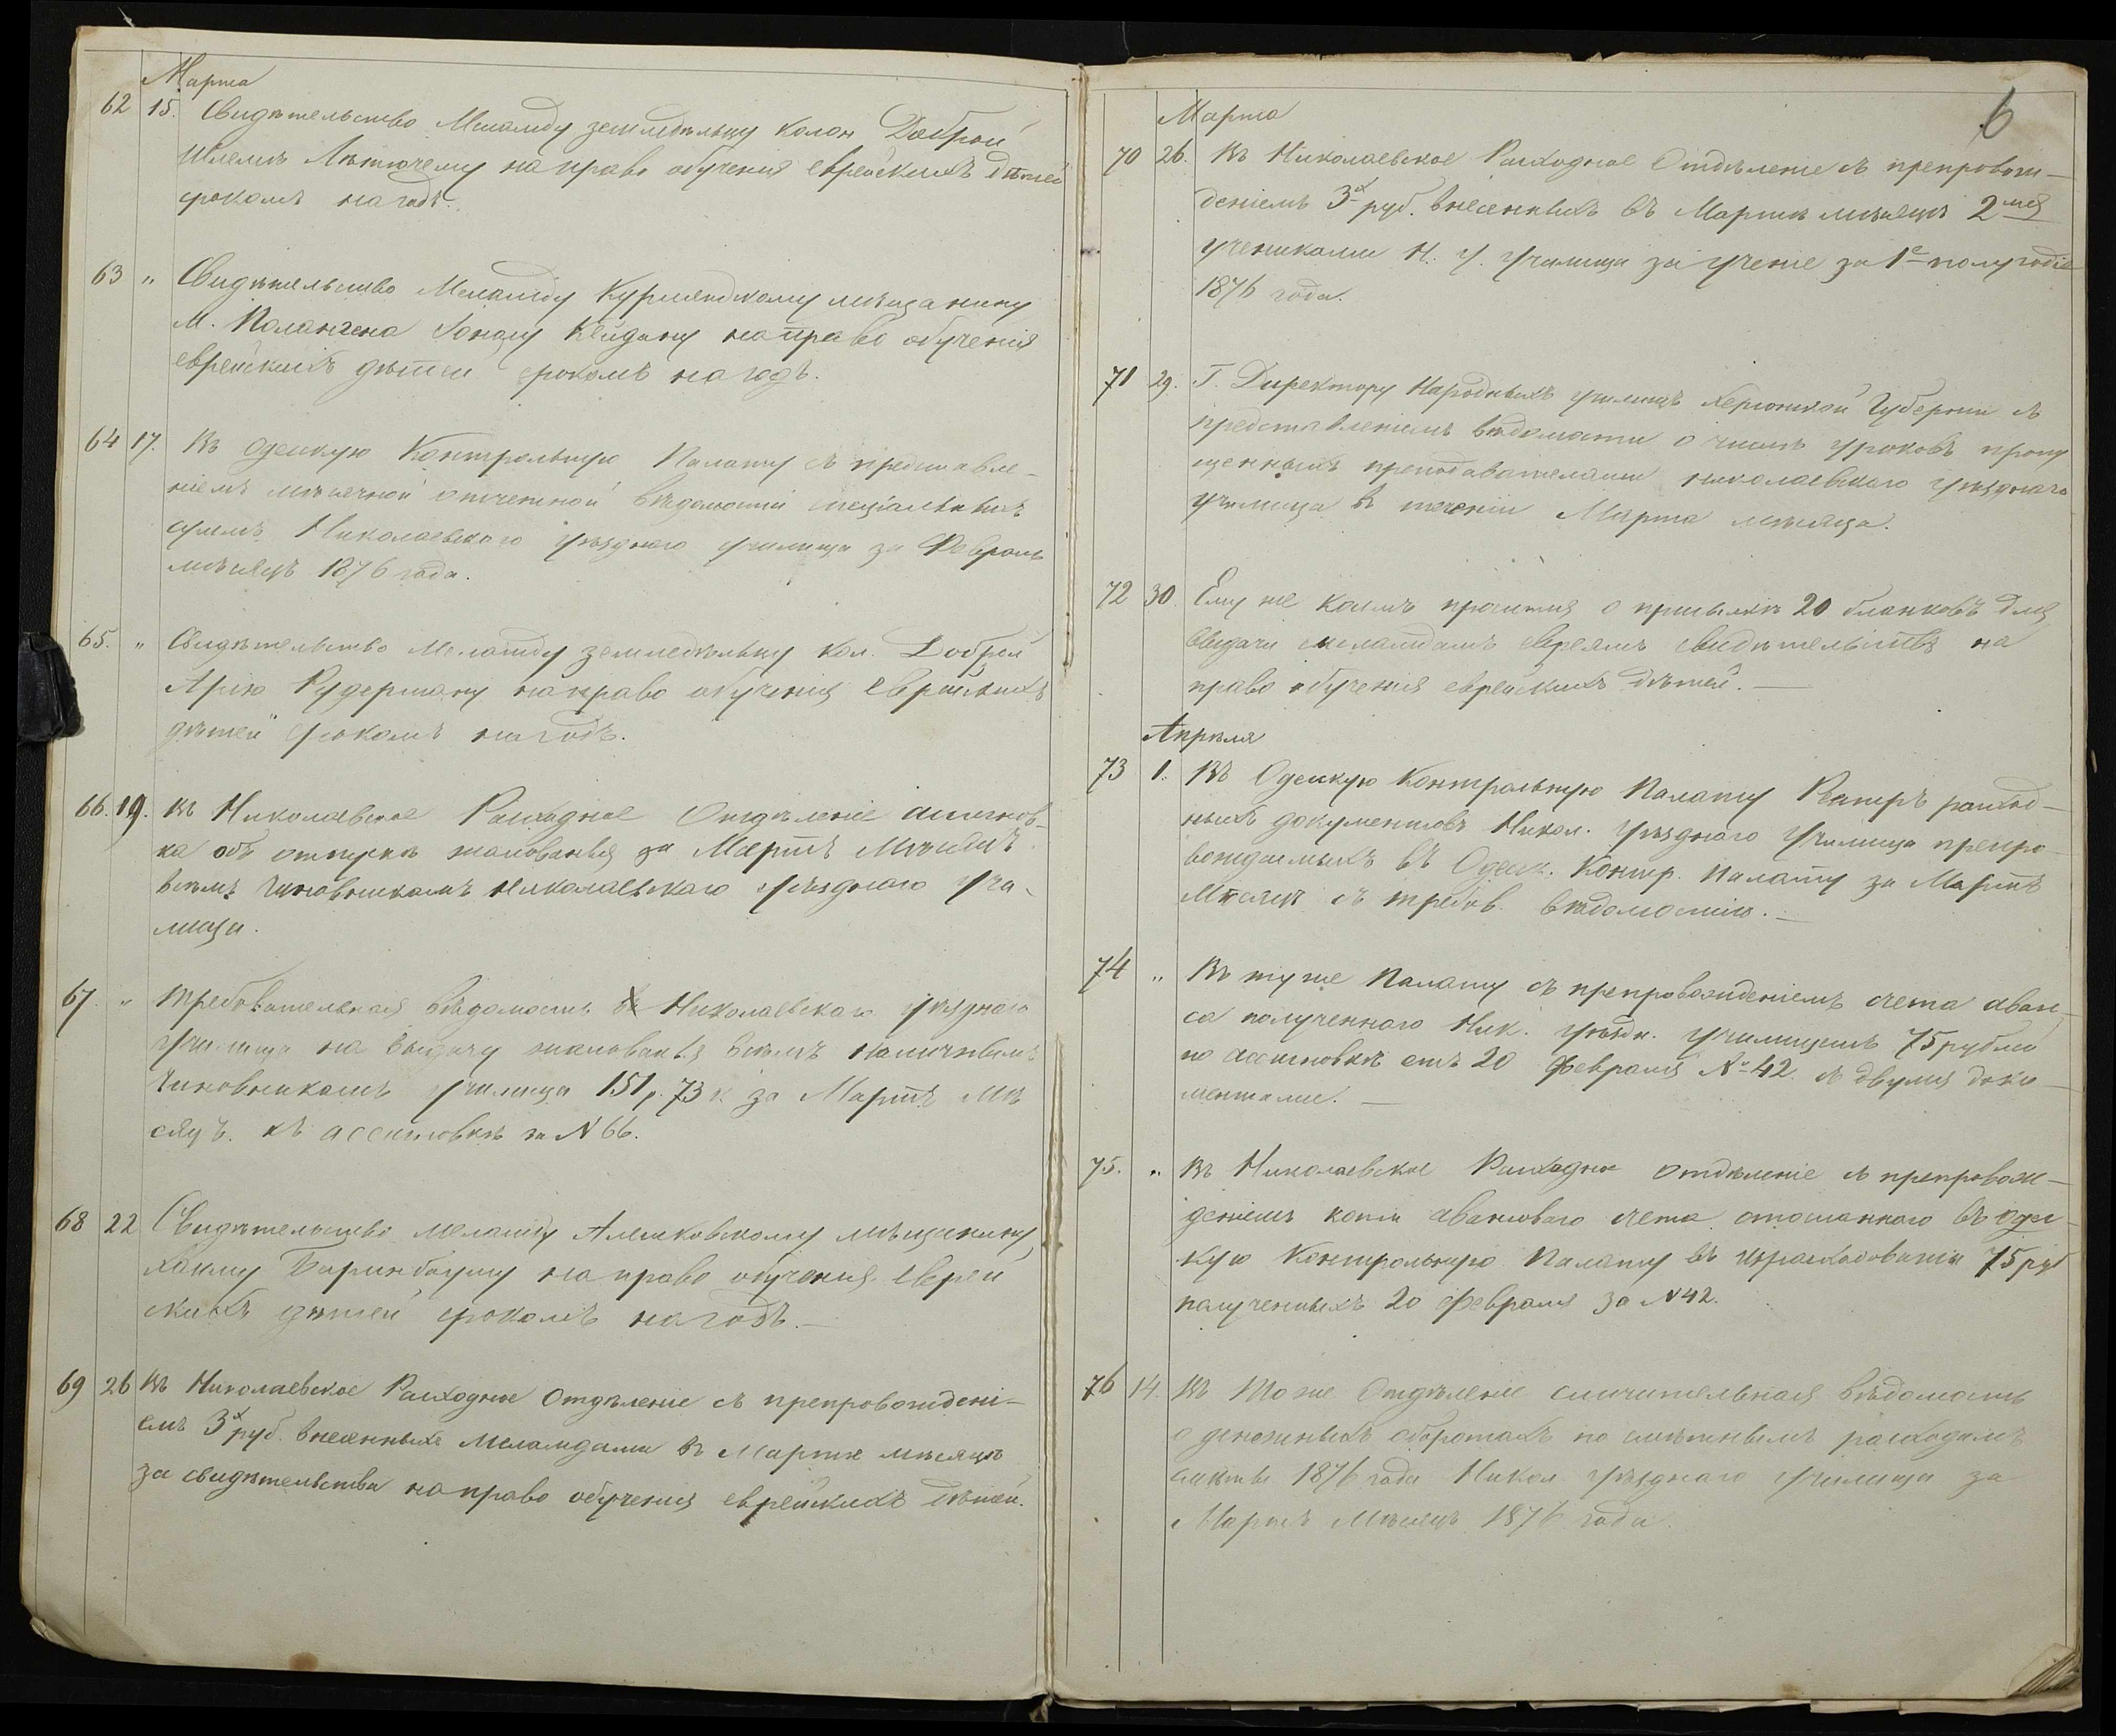 Марта
62 15. Свидѣтельство Меламду земледѣльцу колон Доброй
Шлемѣ Лѣтючему на право обученія еврейскихъ дѣтей
срокомъ на годъ.
63 „ Свидѣтельство Меламду Курляндскому мѣщанину
м. Полангена Кейдану на право обученія
еврейскихъ дѣтей срокомъ на годъ.
64 17. Въ Одесскую Контрольную Палату съ представле-
ніемъ мѣсячной отчетной вѣдомости спеціальныхъ
суммъ Николаевскаго уѣзднаго училища за Февраль
мѣсяцъ 1876 года.
65. „ Свидѣтельство Меламду земледѣльцу кол. Доброй
Арію Рудерману на право обученія еврейскихъ
дѣтей срокомъ на годъ.
66. 19. Въ Николаевское Расходное Отдѣленіе ассигнов-
ка объ отпускѣ жалованья за Мартъ Мѣсяцъ
всѣмъ Чиновникамъ Николаевскаго уѣзднаго Учи-
лища.
67. „ Требовательная вѣдомость Николаевскаго уѣзднаго
Училища на выдачу жалованья всѣмъ наличнымъ
Чиновникамъ училища 151 р. 73 к. за Мартъ Мѣ
сяцъ. къ ассигновкѣ за N 66.
68 22 Свидѣтельство меламду Алешковскому мѣщанину
Хаиму Биринбауму на право обученія еврей
скихъ дѣтей срокомъ на годъ.—
69 26 Въ Николаевское Расходное Отдѣленіе съ препровожденi-
емъ 3х руб. внесенныхъ меламдами въ Мартѣ мѣсяцѣ
за свидѣтельства на право обученія еврейскихъ дѣтей.
6
Марта
70 26. Въ Николаевское Расходное Отдѣленіе съ препровож-
деніемъ 3х руб. внесенныхъ въ Мартѣ мѣсяцѣ 2мя
учениками Н. У. Училища за ученіе за 1е полугодіе
1876 года.
71 29. Г. Директору Народныхъ училищъ Херсонской Губерніи съ
представленіемъ вѣдомости о числѣ уроковъ пропу
щенныхъ преподавателями николаевскаго уѣзднаго
училища въ теченіи Марта мѣсяца.
72 30. Ему же коимъ просится о присылкѣ 20 бланковъ для
выдачи меламдамъ евреямъ свидѣтельствъ на
право обученія еврейскихъ дѣтей.—
Апрѣля
73 1. Въ Одесскую Контрольную Палату Реэстръ расход-
ныхъ документовъ Никол. уѣзднаго Училища препро-
вождаемыхъ въ Одесск. Контр. Палату за Мартъ
Мѣсяцъ съ требов. вѣдомостью.—
74 „ Въ туже Палату съ препровожденіемъ счета аван-
са полученнаго Ник. уѣздн. училищемъ 75 рублей
по ассигновкѣ отъ 20 Февраля № 42. съ двумя доку-
ментами.—
75. „ Въ Николаевское Расходное отдѣленіе съ препровож-
деніемъ копіи авансоваго счета отосланнаго въ Одес-
скую Контрольную Палату въ израсходованіи 75 руб
полученныхъ 20 Февраля за N 42.
76 14. Въ Тоже Отдѣленіе сличительная вѣдомость
о денежныхъ оборотахъ по смѣтнымъ расходамъ
смѣты 1876 года Никол уѣзднаго училища за
Мартъ Мѣсяцъ 1876 года.